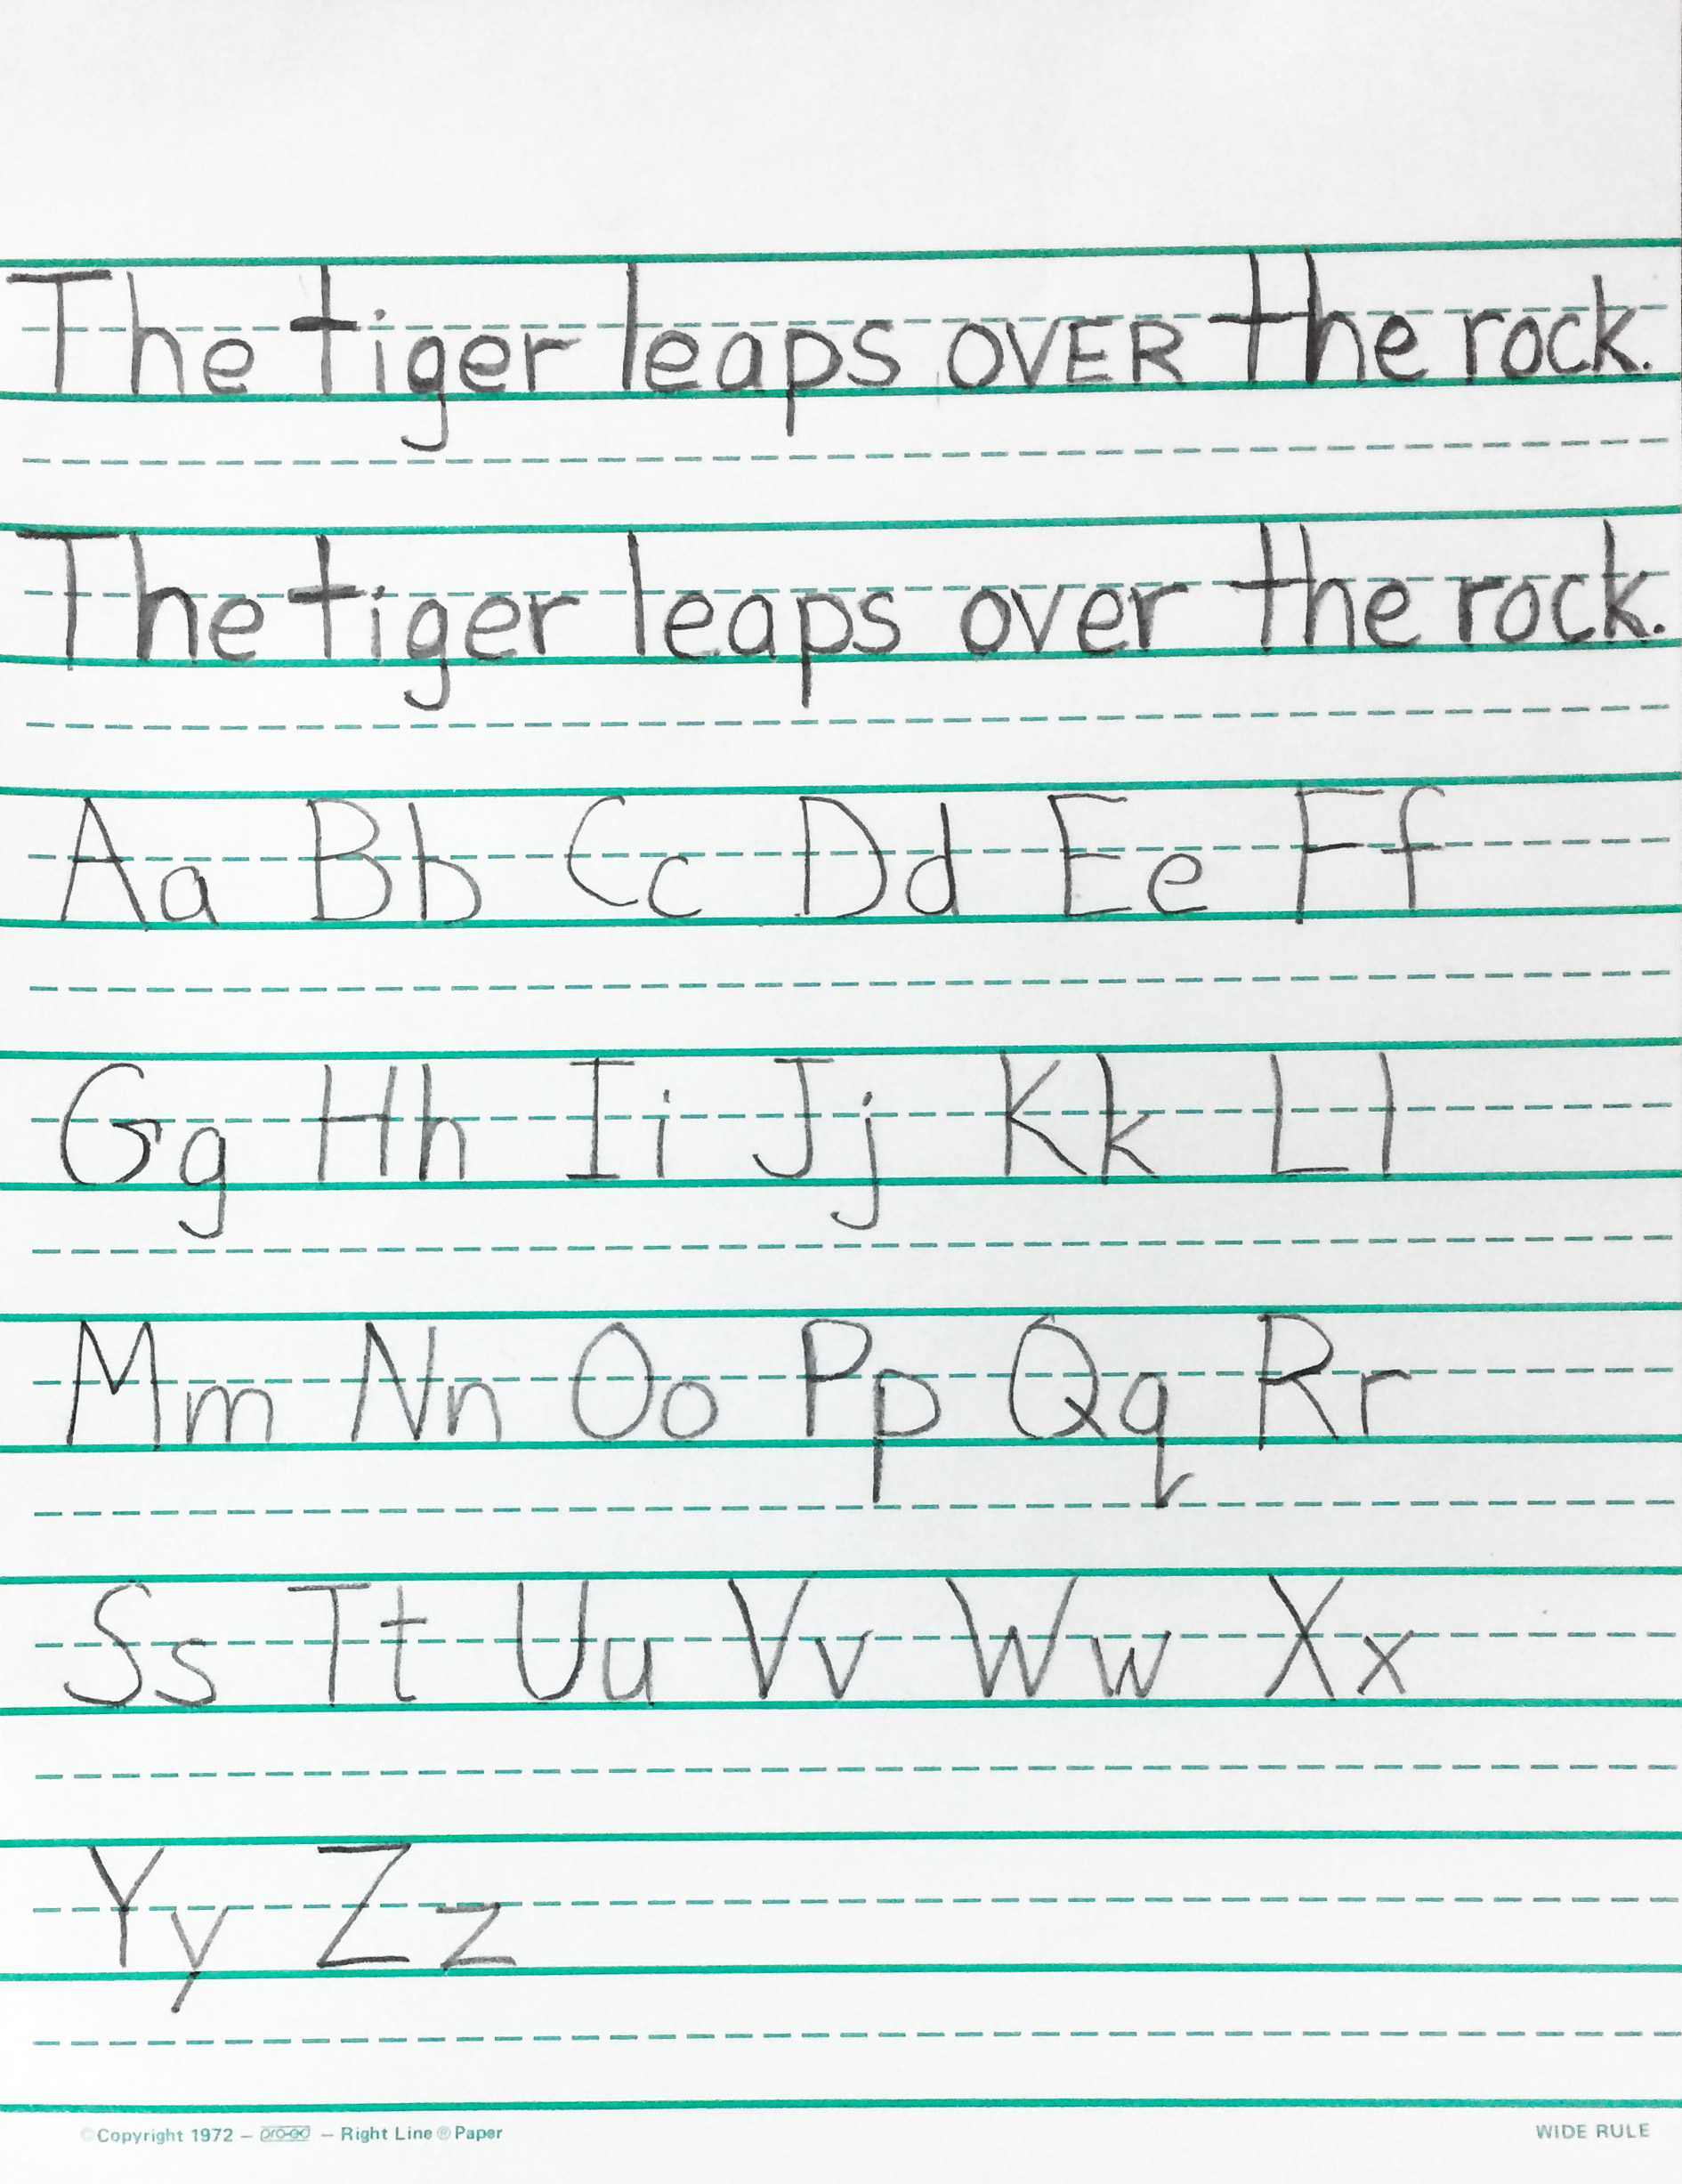 The tiger leaps OVER the rock.
The tiger leaps over the rock.
Aa Bb Cc Dd Ee Ff
Gg Hh Ii Jj Kk Ll
Mm Nn Oo Pp Qq Rr
Ss Tt Uu Vv Ww Xx
Yy Zz
©Copyright 1972 – pro-ed – Right Line® Paper WIDE RULE